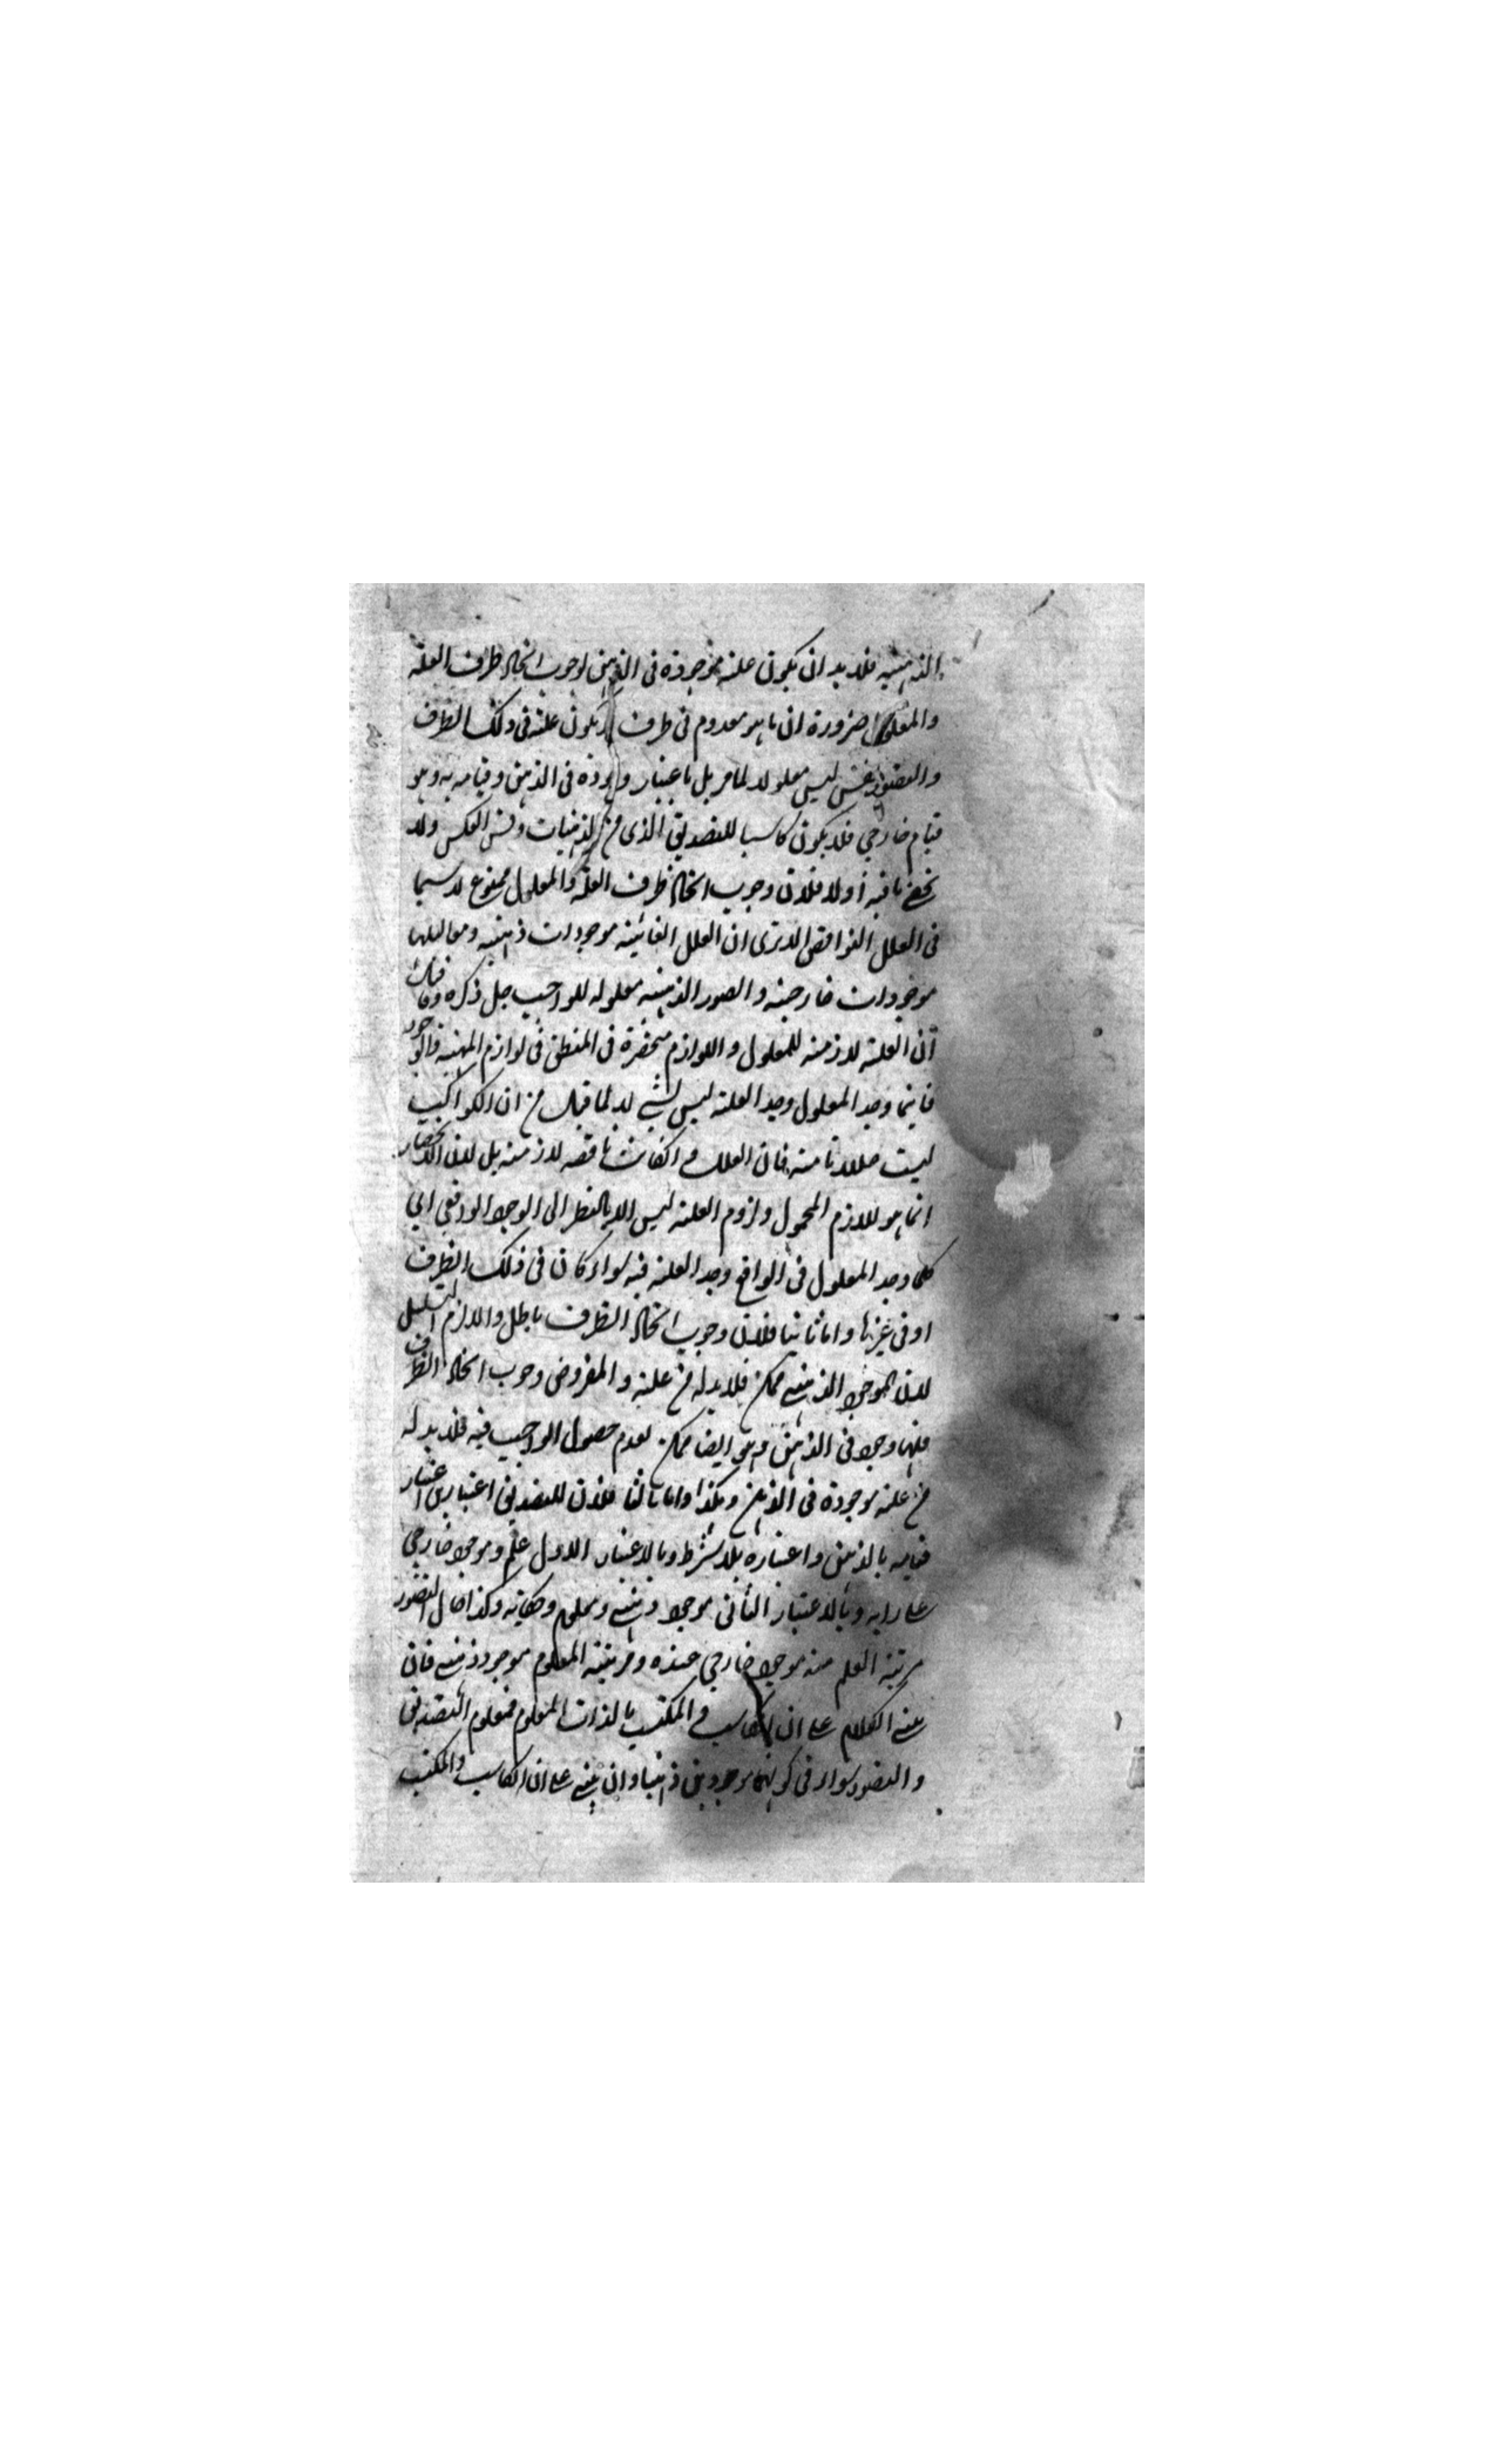 الذهنية فلا بد ان يكون علته موجودة فى الذهن لوجوب اتحاد ظرف العلة
والمعلول ضرورة ان ما هو معدوم فى ظرف لا يكون علة فى ذلك الظرف
والتصور ليس معلولا لما مر بل باعتبار وجوده فى الذهن وقيامه به وهو
قيام خارجي فلا يكون كاسبا للتصديق الذى من الذهنيات وقس العكس ولا
يخفى ما فيه أولا فلان وجوب اتحاد ظرف العلة والمعلول ممنوع لا سيما
فى العلل النواقص الا ترى ان العلل الغائية موجودات ذهنية ومعاليلها
موجودات خارجية والصور الذهنية معلولة للواجب جل ذكره وما قيل
ان العلة لازمة للمعلول واللوازم منحصرة فى المنطق فى لوازم المهية والوجود
فاينما وجد المعلول وجد العلة ليس بشئ لا لما قيل من ان الكواكب
ليست عللا تامة فان العلل وان كانت ناقصة لازمة بل لان الانحصار
انما هو للازم المحمول ولزوم العلة ليس الا بالنظر الى الوجود الواقعى اى
كلما وجد المعلول فى الواقع وجد العلة فيه سواء كان فى ذلك الظرف
او فى غيرها واما ثانيا فلان وجوب اتحاد الظرف باطل والا لزم التسلسل
لان الموجود الذهنى ممكن فلا بد له من علة والمفروض وجوب اتحاد الظرف
فلها وجود فى الذهن وهو ايضا ممكن لعدم حصول الواجب فيه فلا بد له
من علة موجودة فى الذهن وهكذا واما ثالثا فلان للتصديق اعتبارين اعتبار
قيامه بالذهن واعتباره بلا شرط وبالاعتبار الاول علم وموجود خارجي
على رايه وبالاعتبار الثانى موجود ذهنى ومعلوم وحكاية وكذا حال التصور
مرتبة العلم منه موجود خارجي عنده ومرتبة المعلوم موجود ذهنى فان
بنى الكلام على ان الكاسب والمكتسب بالذات المعلوم فمعلوم التصديق
والتصور سواء فى كونهما موجودين ذهنيا وان بنى على ان الكاسب والمكتسب